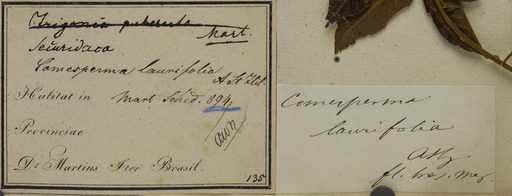 Trigonia puberula
Mart.
Securidaca
Comesperma laurifolia
A. St Hil.
Habitat in Mart Sched. 894.
Provinciae
Dr. Martius Iter Brasil.
135
Comesperma
laurifolia
fl. bras. mer.